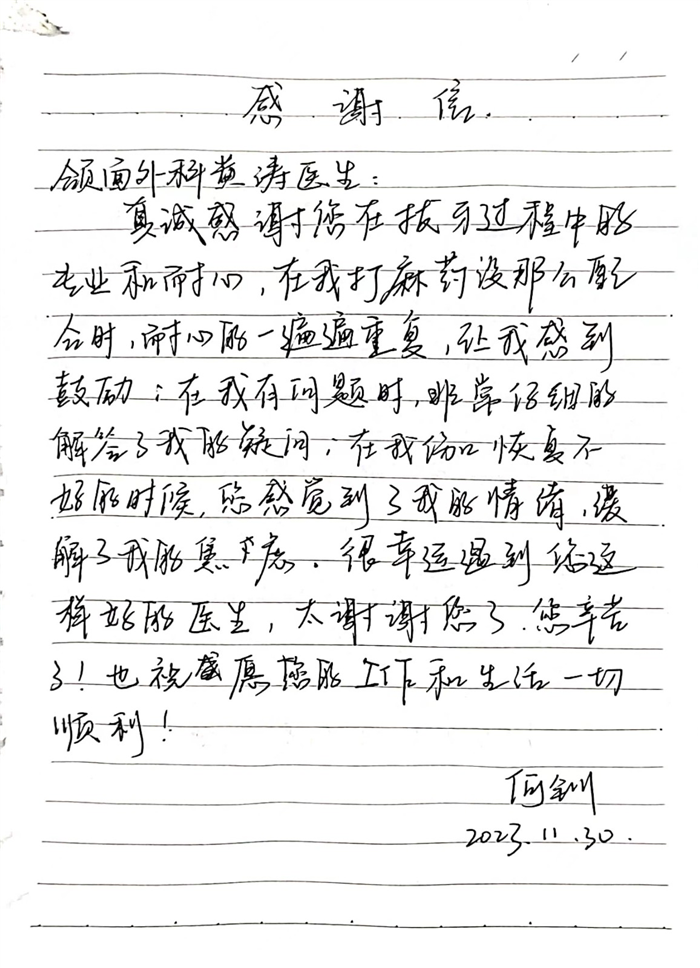 感谢信.
颌面外科黄涛医生：
真诚感谢您在拔牙过程中的
专业和耐心，在我打麻药没那么配
合时，耐心的一遍遍重复，让我感到
鼓励；在我有问题时，非常仔细的
解答了我的疑问；在我伤口恢复不
好的时候，您感觉到了我的情绪，缓
解了我的焦虑．很幸运遇到您这
样好的医生，太谢谢您了．您辛苦
了！也祝愿您的工作和生活一切
顺利！
何钏
2023.11.30.